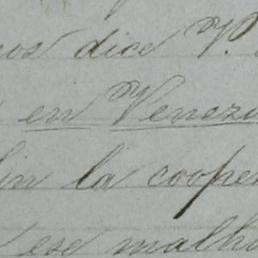 dice V.
en Venezu
la cooper
ese malh